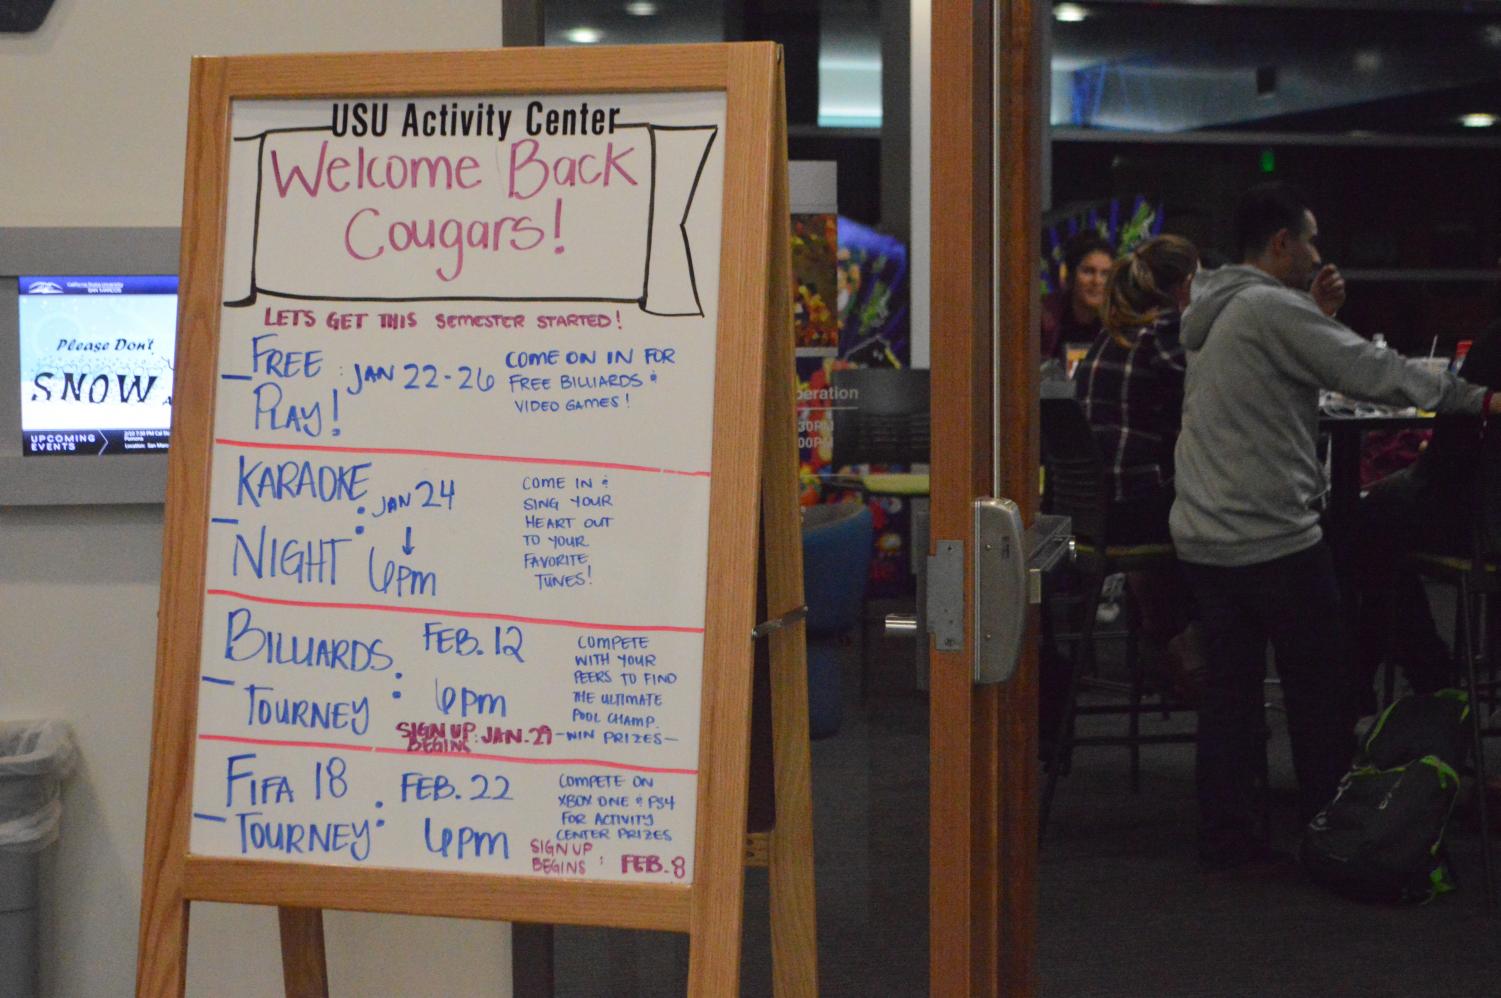 USU Activity Center
Welcome Back
Cougars!
LET'S GET THIS SEMESTER STARTED!
- FREE PLAY! : JAN 22-26
COME ON IN FOR
FREE BILLIARDS &
VIDEO GAMES!
- KARAOKE NIGHT : JAN 24
↓
6pm
COME IN &
SING YOUR
HEART OUT
TO YOUR
FAVORITE
TUNES!
- BILLIARDS TOURNEY : FEB. 12
6pm
SIGN UP BEGINS : JAN. 29
COMPETE
WITH YOUR
PEERS TO FIND
THE ULTIMATE
POOL CHAMP.
-WIN PRIZES-
- FIFA 18 TOURNEY : FEB. 22
6pm
COMPETE ON
XBOX ONE & PS4
FOR ACTIVITY
CENTER PRIZES
SIGN UP
BEGINS : FEB. 8
California State University
SAN MARCOS
Please Don't
SNOW
UPCOMING
EVENTS
peration
30PM
00PM